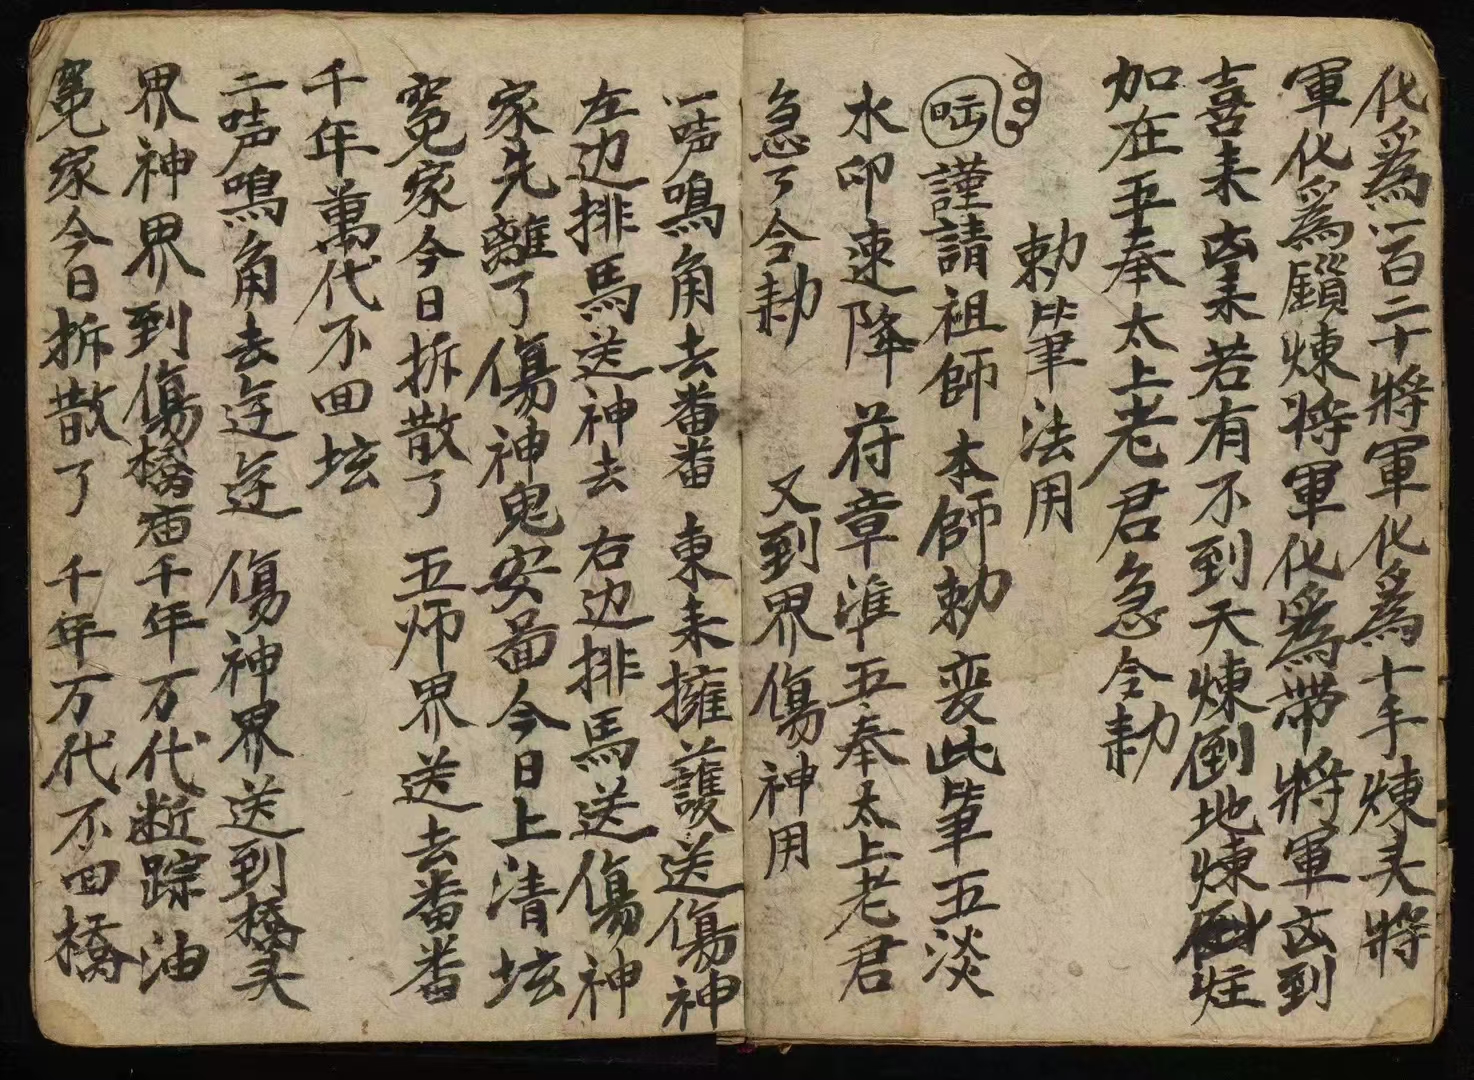 化爲一百二十將軍化爲十手煉头將
軍化爲煉将軍化爲帶將軍凶到
喜耒凶耒若有不到天煉倒地煉炷
加在五奉太上老君急令勅
勅笔法用
謹請祖師本師勅变此筆五淡
水印速降苻章准五奉太上老君
急了令勅 又到界傷神用
一声鳴角去番番 東耒擁護送傷神
左边排馬送神去 右边排馬送傷神
家先離了傷神鬼安啚今日上清坛
冤家今日拆散了 五师界送去番番
千年萬代不回坛
二声鳴角去 傷神界送到橋头
界神界到傷橋庙千年万代断踪油
冤家今日拆散了 千年万代不回橋